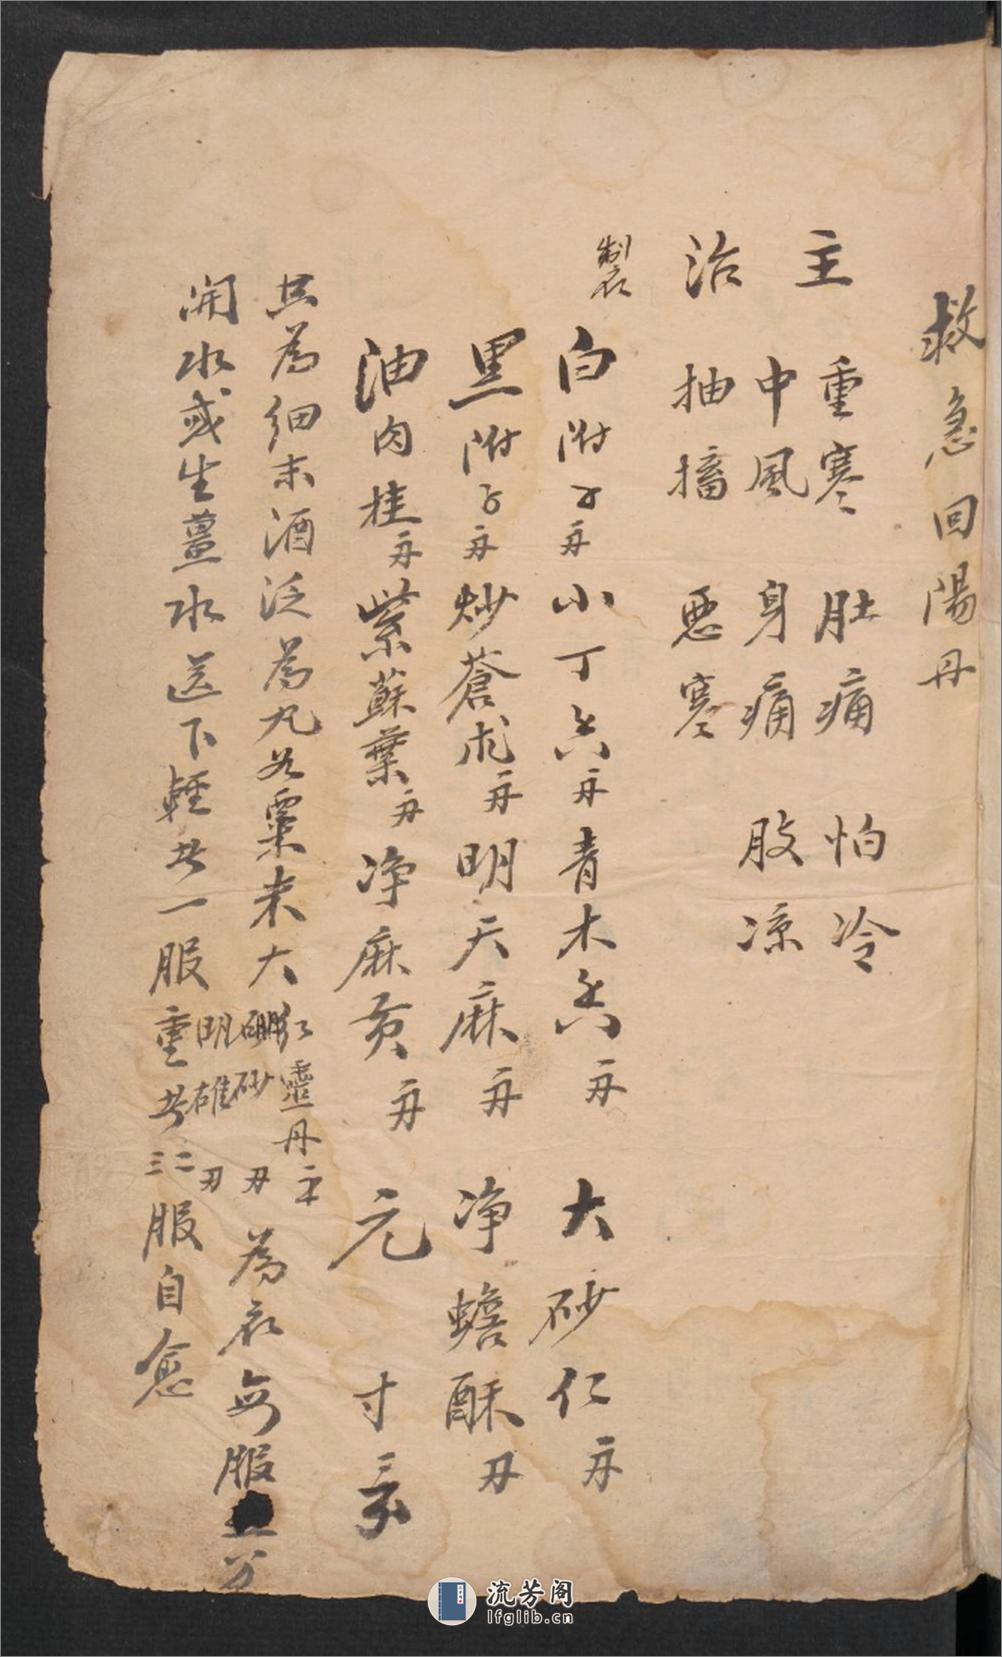 救急回陽丹
主治
重寒 肚痛 怕冷
中風 身痛 肢凉
抽搐 惡寒
製
白附子 小丁香 青木香 大砂仁
黑附子 炒蒼朮 明天麻 净蟾酥
油肉桂 紫蘇葉 净麻黄 元寸
共為細末酒泛為丸如粟米大 紅靈丹 硼砂 明雄 為衣每服
開水或生薑水送下輕者一服重者二三服自愈
流芳阁
lfglib.cn